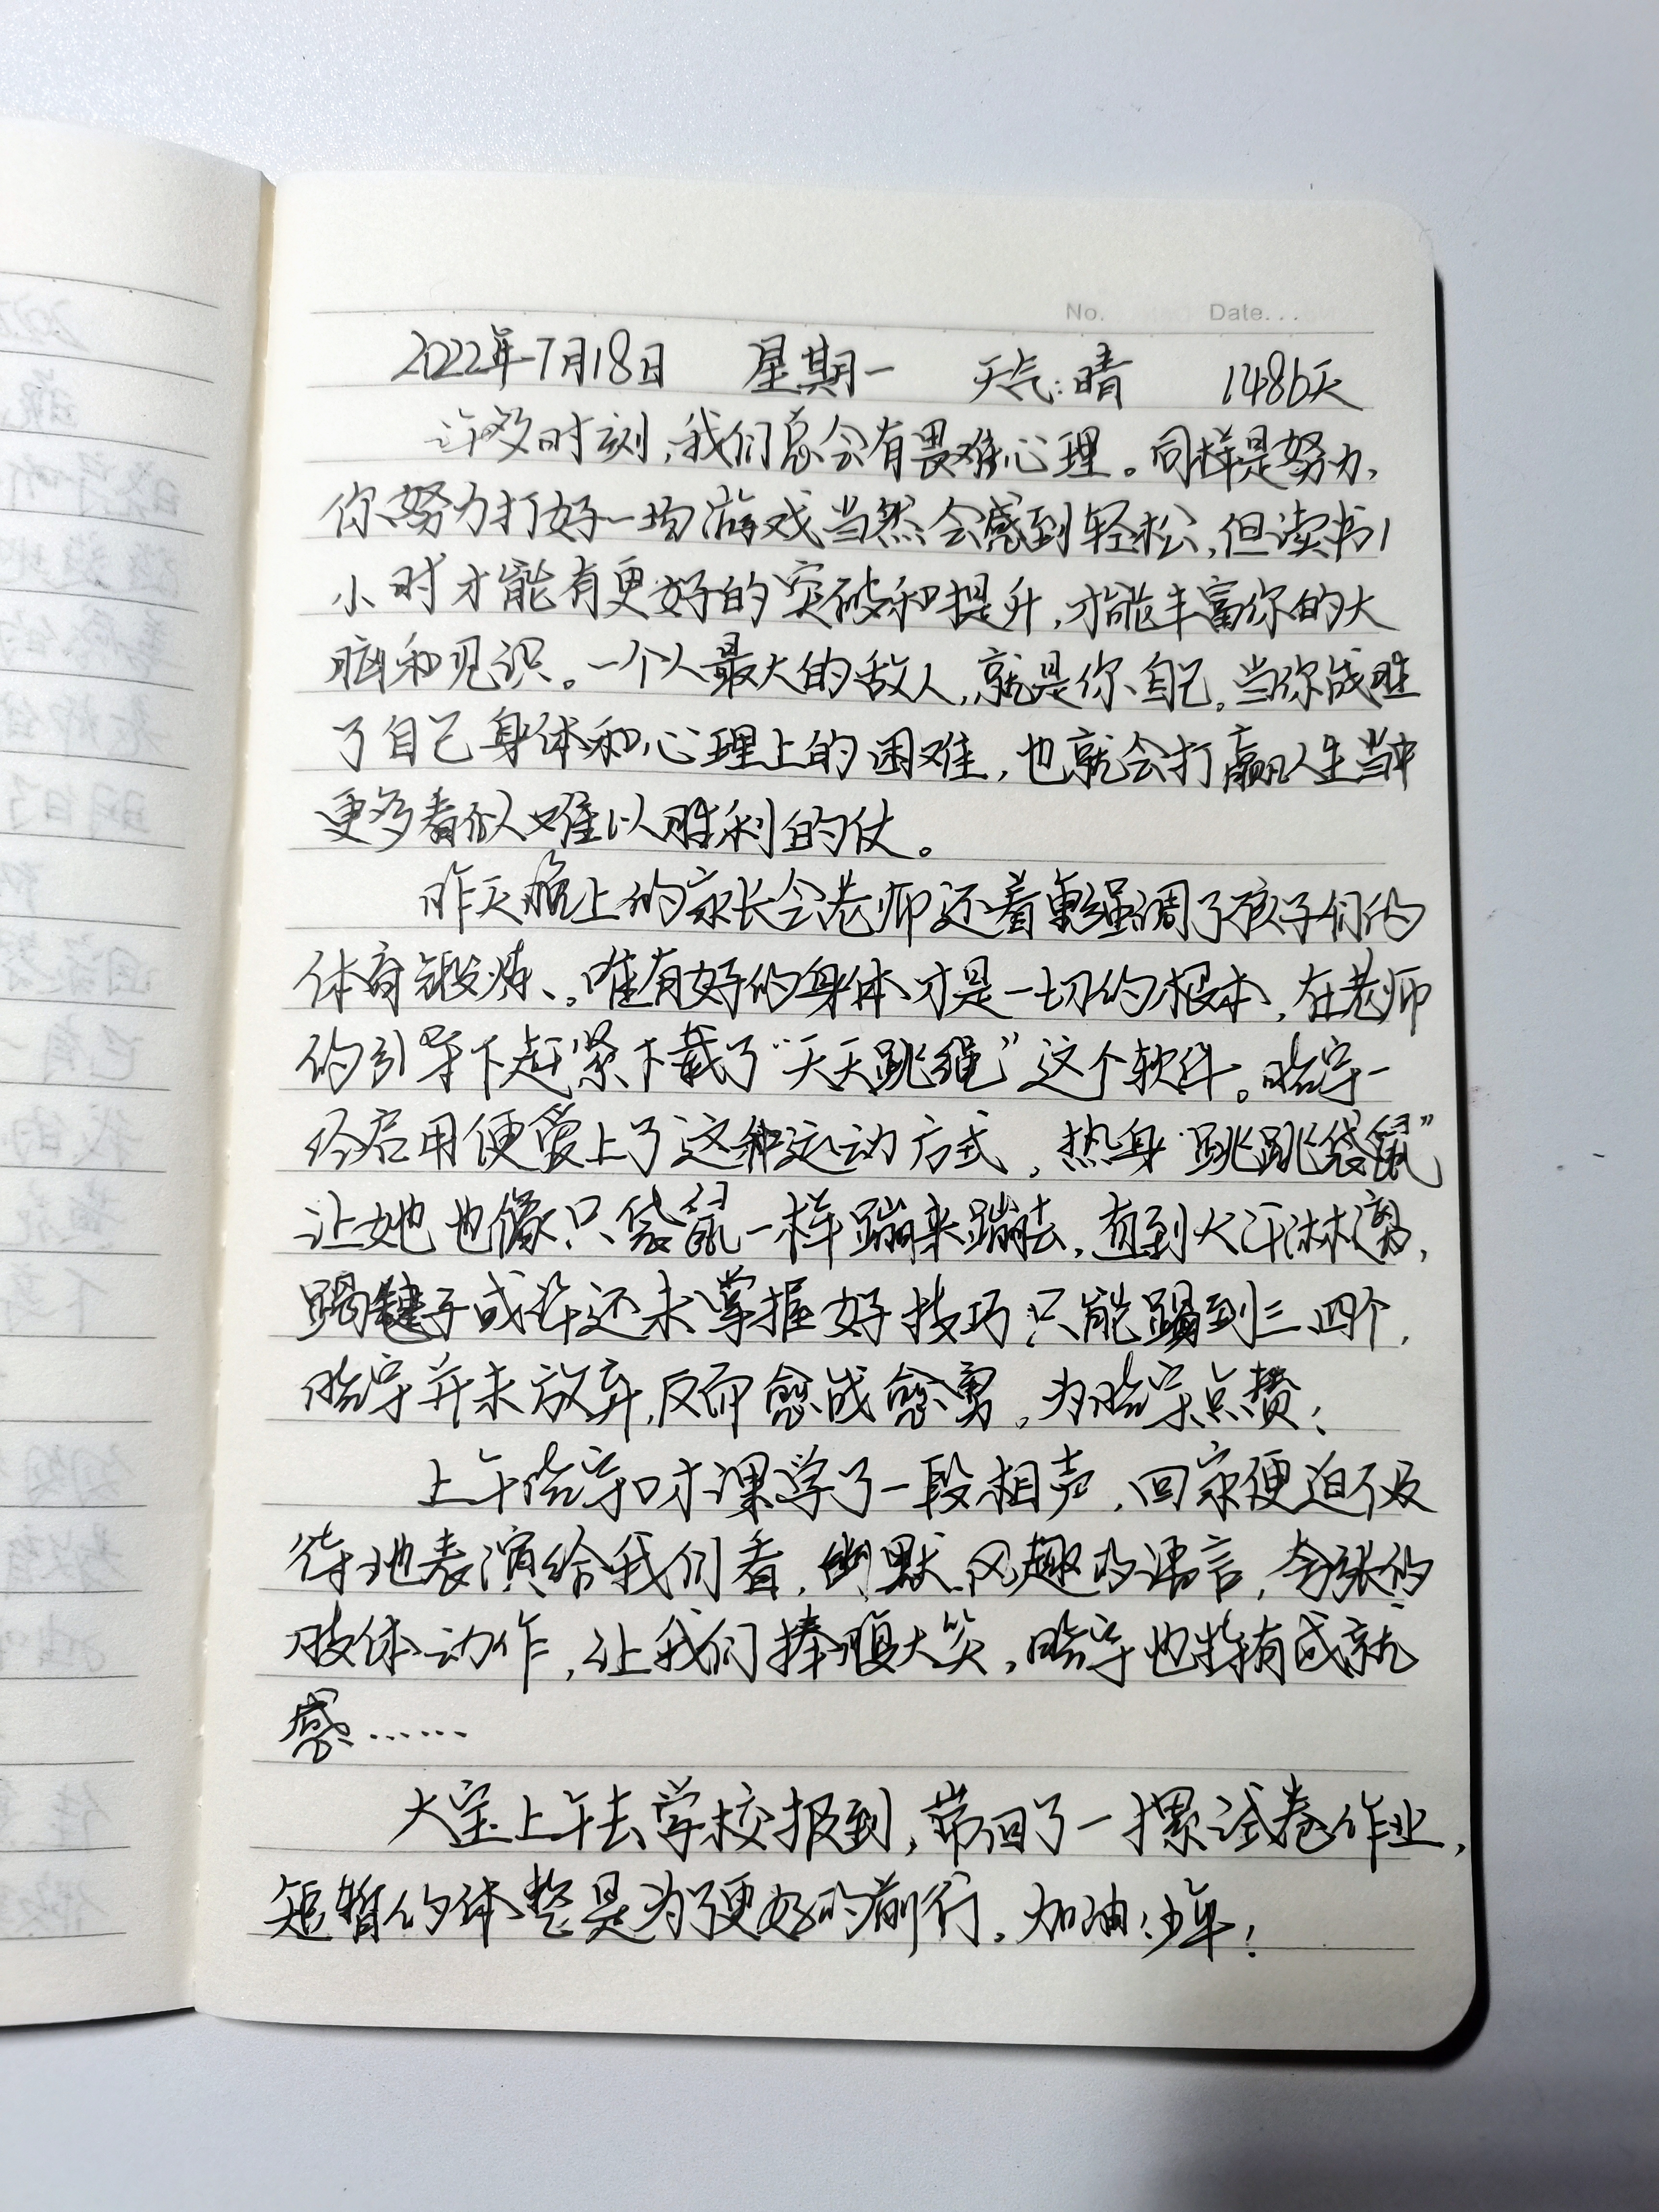 No. Date...
2022年7月18日 星期一 天气:晴 1486天
许多时刻,我们总会有畏难心理。同样是努力,
你努力打好一场游戏当然会感到轻松,但读书1
小时才能有更好的突破和提升,才能丰富你的大
脑和见识。一个人最大的敌人,就是你自己。当你战胜
了自己身体和心理上的困难,也就会打赢人生当中
更多看似难以胜利的仗。
昨天晚上的家长会老师还着重强调了孩子们的
体育锻炼、。唯有好的身体才是一切的根本,在老师
的引导下赶紧下载了“天天跳绳”这个软件。晗宇一
经启用便爱上了这种运动方式,热身“跳跳袋鼠”
让她也像只袋鼠一样蹦来蹦去,直到大汗淋漓,
踢毽子或许还未掌握好技巧只能踢到三四个,
晗宇并未放弃,反而愈战愈勇。为晗宇点赞!
上午晗宇口才课学了一段相声,回家便迫不及
待地表演给我们看,幽默风趣的语言,夸张的
肢体动作,让我们捧腹大笑,晗宇也特有成就
感……
大宝上午去学校报到,带回了一摞试卷作业,
短暂的休整是为了更好的前行。加油!少年!